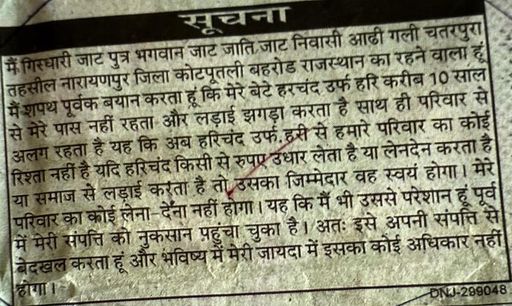 सूचना
मैं गिरधारी जाट पुत्र भगवान जाट जाति जाट निवासी आढी गली चतरपुरा
तहसील नारायणपुर जिला कोटपूतली बहरोड राजस्थान का रहने वाला हूं
मैं शपथ पूर्वक बयान करता हूं कि मेरे बेटे हरचंद उर्फ हरि करीब 10 साल
से मेरे पास नहीं रहता और लड़ाई झगड़ा करता है साथ ही परिवार से
अलग रहता है यह कि अब हरिचंद उर्फ हरी से हमारे परिवार का कोई
रिश्ता नहीं है यदि हरिचंद किसी से रुपए उधार लेता है या लेनदेन करता है
या समाज से लड़ाई करता है तो उसका जिम्मेदार वह स्वयं होगा। मेरे
परिवार का कोई लेना-देना नहीं होगा। यह कि मैं भी उससे परेशान हूं पूर्व
में मेरी संपत्ति को नुकसान पहुचा चुका है। अतः इसे अपनी संपत्ति से
बेदखल करता हूं और भविष्य में मेरी जायदा में इसका कोई अधिकार नहीं
होगा।
DNJ-299048